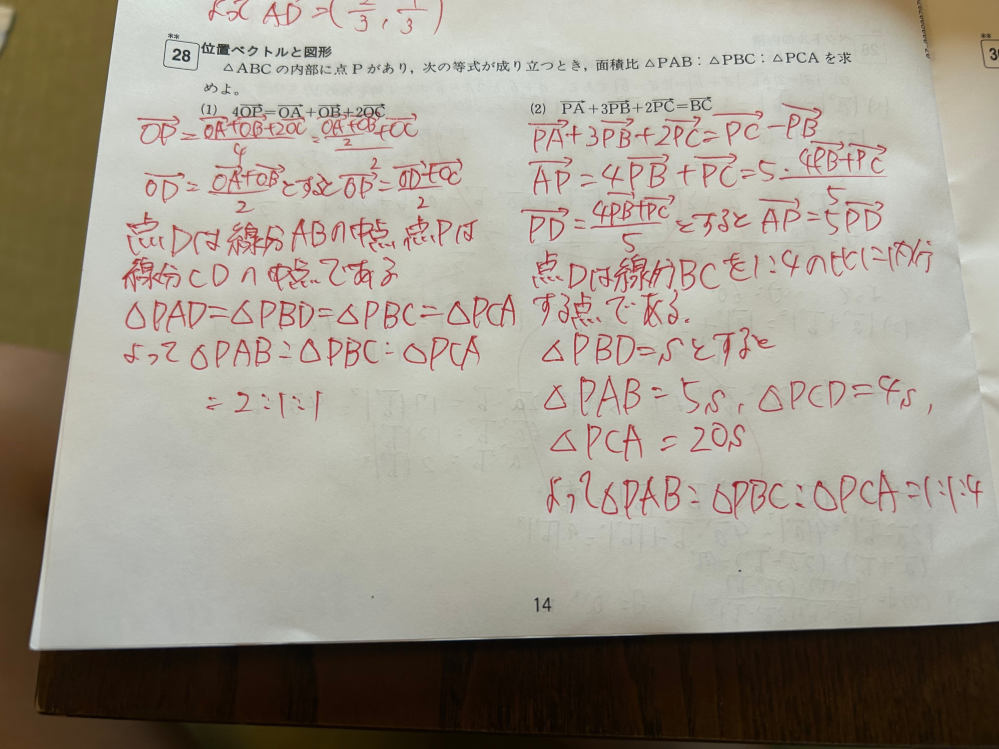 よって AD→=(2/3, 1/3)
**
28 位置ベクトルと図形
△ABC の内部に点 P があり,次の等式が成り立つとき,面積比 △PAB:△PBC:△PCA を求
めよ。
(1) 4OP→=OA→+OB→+2OC→
OP→=(OA→+OB→+2OC→)/4=((OA→+OB→)/2+OC→)/2
OD→=(OA→+OB→)/2とするとOP→=(OD→+OC→)/2
点Dは線分ABの中点,点Pは
線分CDの中点である
△PAD=△PBD=△PBC=△PCA
よって△PAB:△PBC:△PCA
=2:1:1
(2) PA→+3PB→+2PC→=BC→
PA→+3PB→+2PC→=PC→-PB→
AP→=4PB→+PC→=5・(4PB→+PC→)/5
PD→=(4PB→+PC→)/5とするとAP→=5PD→
点Dは線分BCを1:4の比に内分
する点である.
△PBD=sとすると
△PAB=5s,△PCD=4s,
△PCA=20s
よって△PAB:△PBC:△PCA=1:1:4
14
**